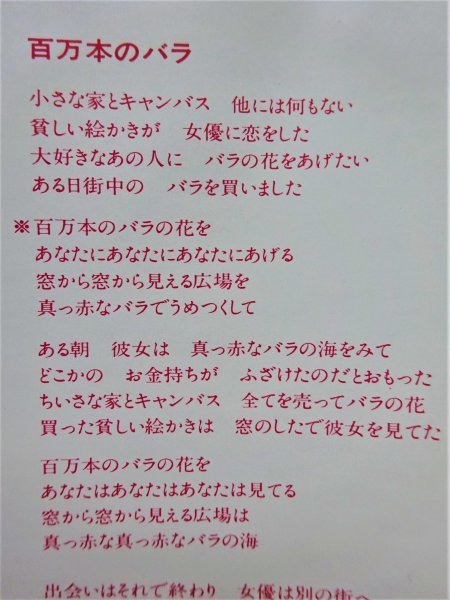 百万本のバラ
小さな家とキャンバス　他には何もない
貧しい絵かきが　女優に恋をした
大好きなあの人に　バラの花をあげたい
ある日街中の　バラを買いました
※百万本のバラの花を
あなたにあなたにあなたにあげる
窓から窓から見える広場を
真っ赤なバラでうめつくして
ある朝　彼女は　真っ赤なバラの海をみて
どこかの　お金持ちが　ふざけたのだとおもった
ちいさな家とキャンバス　全てを売ってバラの花
買った貧しい絵かきは　窓のしたで彼女を見てた
百万本のバラの花を
あなたはあなたはあなたは見てる
窓から窓から見える広場は
真っ赤な真っ赤なバラの海
出会いはそれで終わり　女優は別の街へ